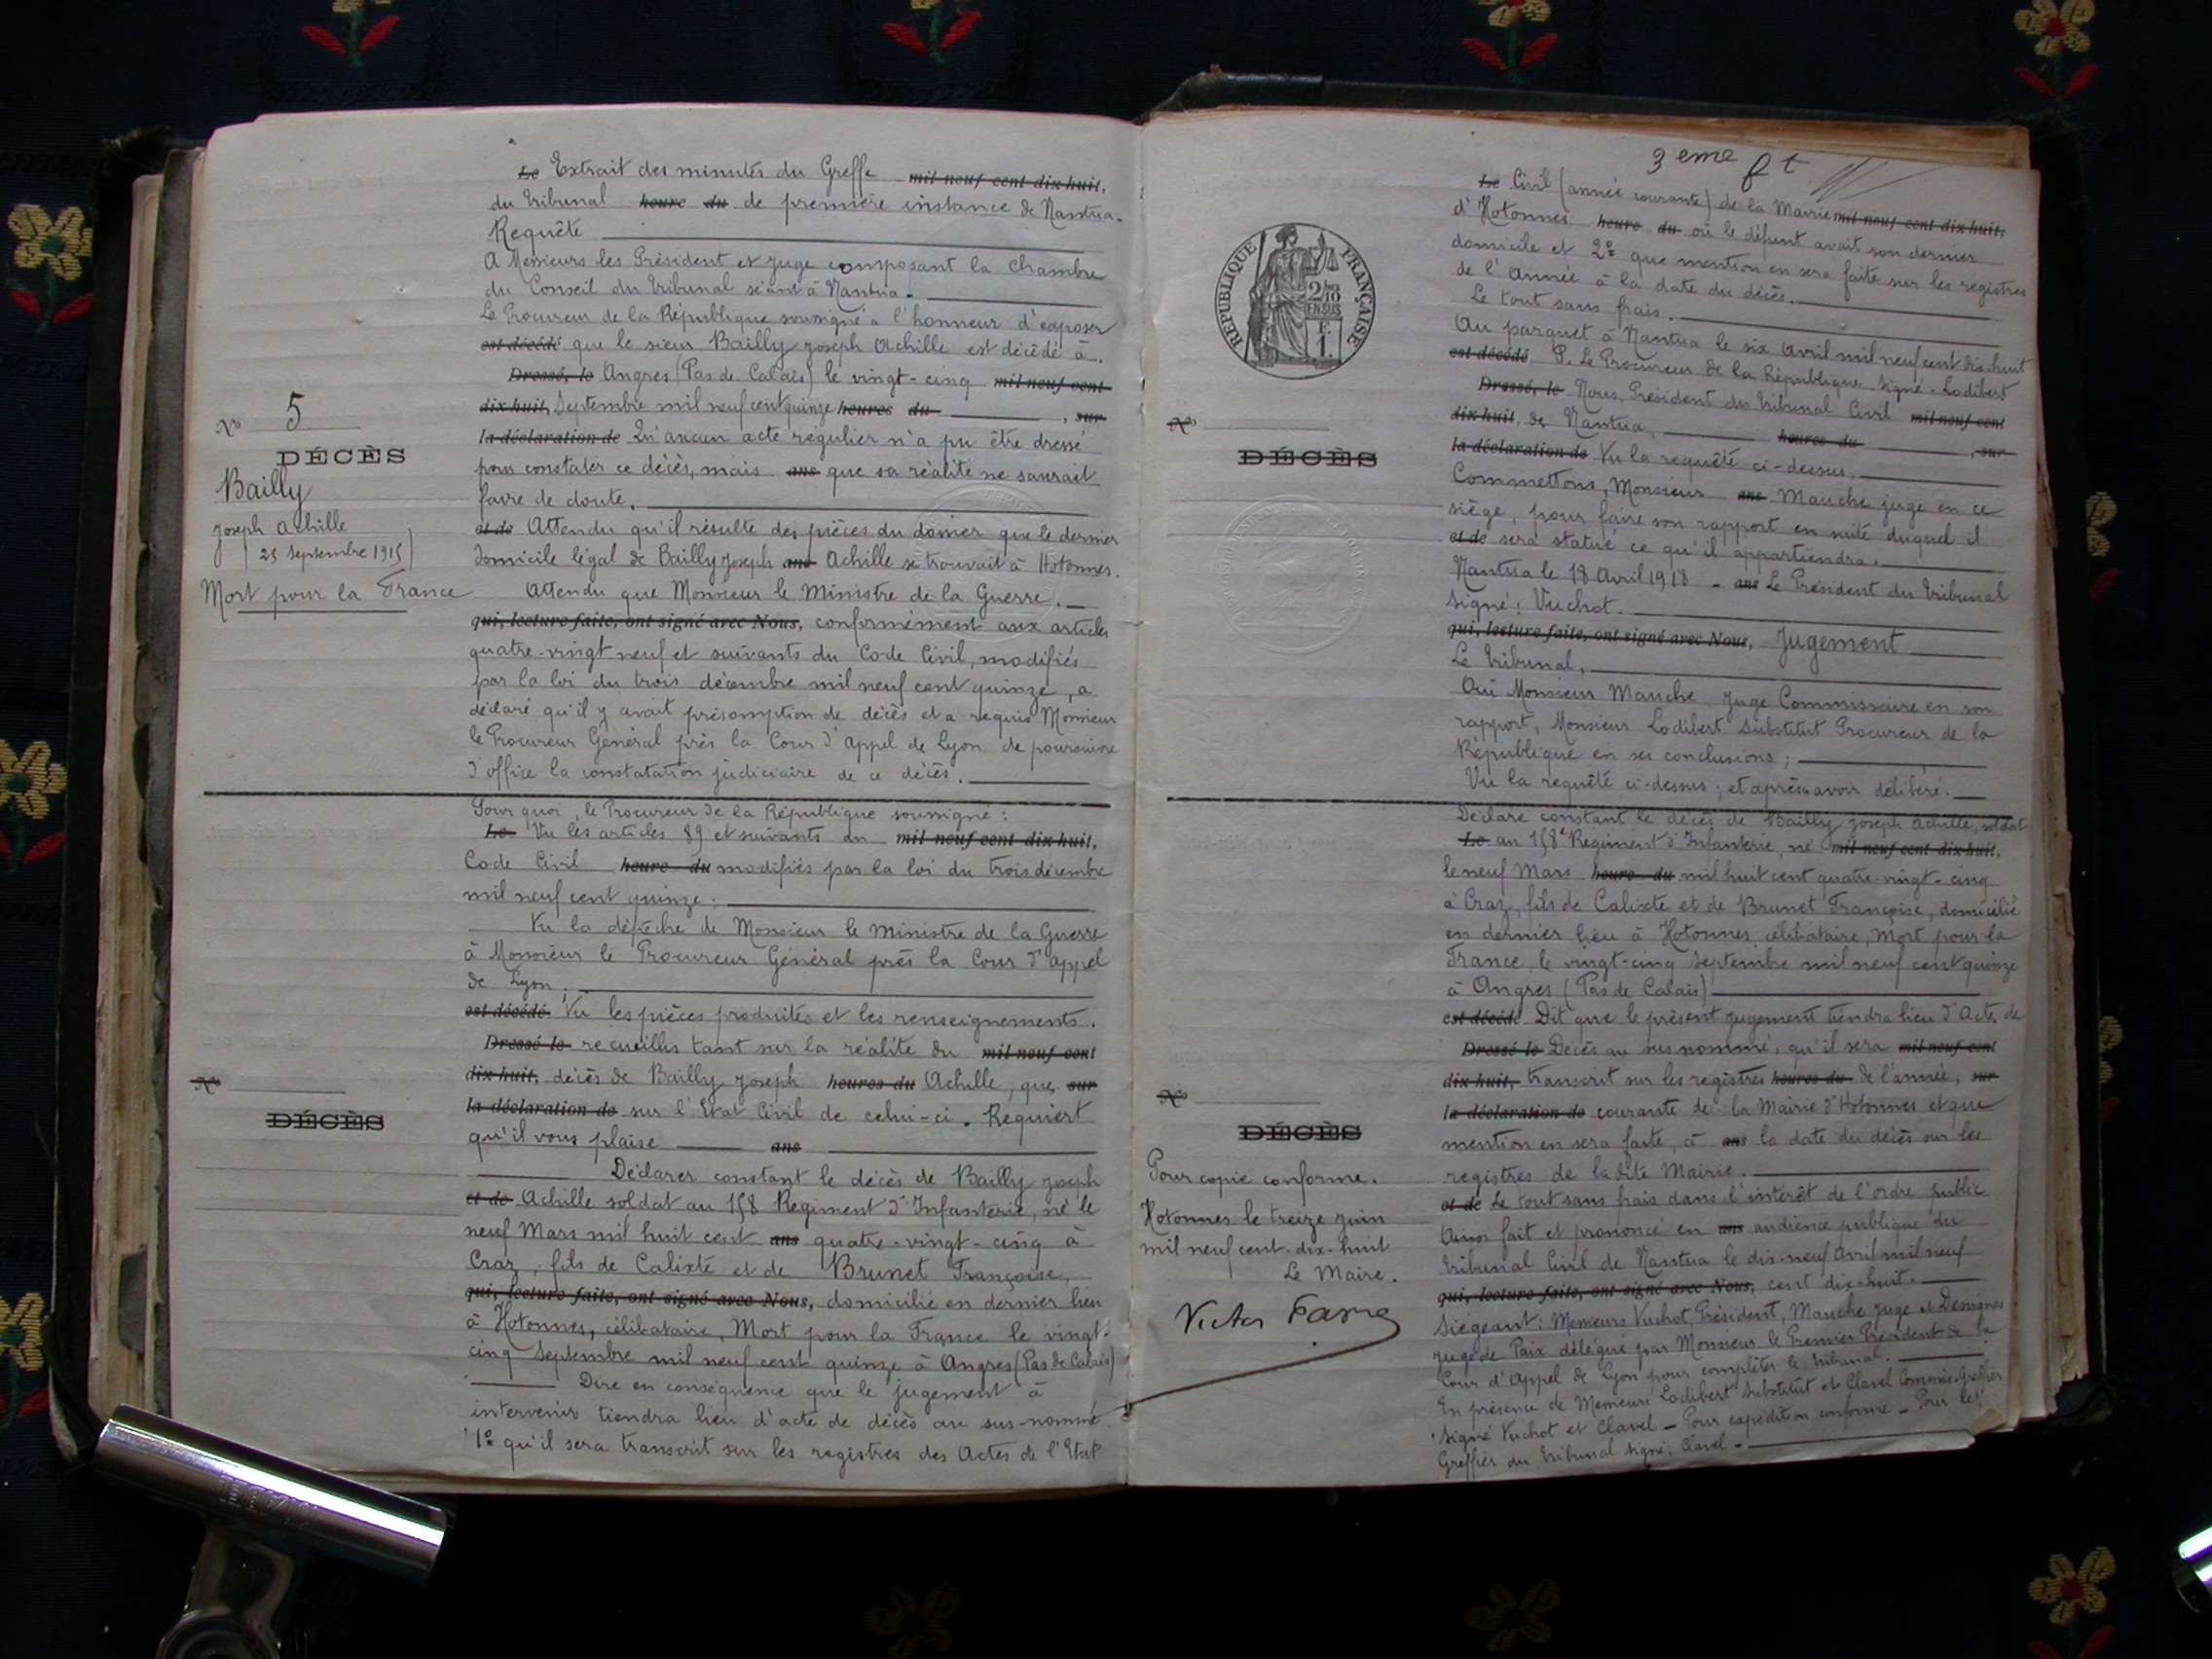 Le Extrait des minutes du Greffe mil neuf cent dix huit,
du Tribunal heure du de première instance de Nantua.
Requête
A Messieurs les Président et Juge composant la Chambre
du Conseil du Tribunal séant à Nantua.
Le Procureur de la République soussigné a l'honneur d'exposer
est décédé que le sieur Bailly Joseph Achille est décédé à.
Dressé, le Angres (Pas de Calais) le vingt-cinq mil neuf cent
dix huit, Septembre mil neuf cent quinze heures du , sur
la déclaration de Qu'aucun acte régulier n'a pu être dressé
pour constater ce décès, mais ans que sa réalité ne saurait
faire de doute.
et de Attendu qu'il résulte des pièces du dossier que le dernier
domicile légal de Bailly Joseph ans Achille se trouvait à Hotonnes.
Attendu que Monsieur le Ministre de la Guerre.
qui, lecture faite, ont signé avec Nous, conformément aux articles
quatre-vingt neuf et suivants du Code Civil, modifiés
par la loi du trois décembre mil neuf cent quinze, a
déclaré qu'il y avait présomption de décès et a requis Monsieur
le Procureur Général près la Cour d'appel de Lyon de poursuivre
d'office la constatation judiciaire de ce décès.
No 5
DÉCÈS
Bailly
Joseph Achille
(25 Septembre 1915)
Mort pour la France
Pourquoi, le Procureur de la République soussigné :
Le Vu les articles 89 et suivants du mil neuf cent dix huit,
Code Civil heure du modifiés par la loi du trois décembre
mil neuf cent quinze.
Vu la dépêche de Monsieur le Ministre de la Guerre
à Monsieur le Procureur Général près la Cour d'appel
de Lyon ;
est décédé Vu les pièces produites et les renseignements.
Dressé le recueillis tant sur la réalité du mil neuf cent
dix huit, décès de Bailly Joseph heures du Achille, que sur
la déclaration de sur l'Etat Civil de celui-ci. Requiert
qu'il vous plaise ans
Déclarer constant le décès de Bailly Joseph
et de Achille soldat au 158 Régiment d'Infanterie, né le
neuf Mars mil huit cent ans quatre-vingt-cinq à
Craz, fils de Calixte et de Brunet Françoise,
qui, lecture faite, ont signé avec Nous, domicilié en dernier lieu
à Hotonnes, célibataire, Mort pour la France le vingt-
cinq Septembre mil neuf cent quinze à Angres (Pas de Calais)
Dire en conséquence que le jugement à
intervenir tiendra lieu d'acte de décès au sus-nommé
1º qu'il sera transcrit sur les registres des Actes de l'Etat
No
DÉCÈS
3 eme f t
Le Civil (année courante) de la Mairie mil neuf cent dix huit,
d'Hotonnes heure du où le défunt avait son dernier
domicile et 2º que mention en sera faite sur les registres
de l'Année à la date du décès.
Le tout sans frais.
Au parquet à Nantua le six Avril mil neuf cent dix-huit
est décédé P. Le Procureur de la République signé - Lodibert
Dressé, le Nous, Président du Tribunal Civil mil neuf cent
dix huit, de Nantua, heures du , sur
la déclaration de Vu la requête ci-dessus.
Commettons, Monsieur ans Mauche juge en ce
siège, pour faire son rapport en suite duquel il
et de sera statué ce qu'il appartiendra.
Nantua le 18 Avril 1918 - ans Le Président du Tribunal
signé : Vuchot.
qui, lecture faite, ont signé avec Nous, Jugement
Le Tribunal,
Ouï Monsieur Mauche, Juge Commissaire en son
rapport, Monsieur Lodibert Substitut Procureur de la
République en ses conclusions ;
Vu la requête ci-dessus ; et après avoir délibéré.
RÉPUBLIQUE FRANÇAISE
2/10
EN SUS
1 F.
No
DÉCÈS
Déclare constant le décès de Bailly Joseph Achille, soldat
Le au 158e Régiment d'Infanterie, né mil neuf cent dix huit,
le neuf Mars heure du mil huit cent quatre-vingt-cinq
à Craz, fils de Calixte et de Brunet Françoise, domicilié
en dernier lieu à Hotonnes, célibataire, Mort pour la
France, le vingt-cinq Septembre mil neuf cent quinze
à Angres (Pas de Calais)
est décédé Dit que le présent jugement tiendra lieu d'Acte de
Dressé le Décès au sus nommé, qu'il sera mil neuf cent
dix huit, transcrit sur les registres heures du de l'année, sur
la déclaration de courante de la Mairie d'Hotonnes et que
mention en sera faite, à ans la date du décès sur les
registres de ladite Mairie.
et de Le tout sans frais dans l'intérêt de l'ordre public
Ainsi fait et prononcé en ans audience publique du
Tribunal Civil de Nantua le dix-neuf Avril mil neuf
qui, lecture faite, ont signé avec Nous, cent dix-huit.
Siégeant : Messieurs Vuchot, Président, Mauche Juge et
Juge de Paix délégué par Monsieur le Premier Président de la
Cour d'Appel de Lyon pour compléter le Tribunal.
En présence de Messieurs Lodibert Substitut et Clavel Commis-Greffier
Signé Vuchot et Clavel - Pour expédition conforme - Pour le
Greffier du Tribunal signé : Clavel -
No
DÉCÈS
Pour copie conforme.
Hotonnes le treize Juin
mil neuf cent-dix-huit
Le Maire.
Victor Favre